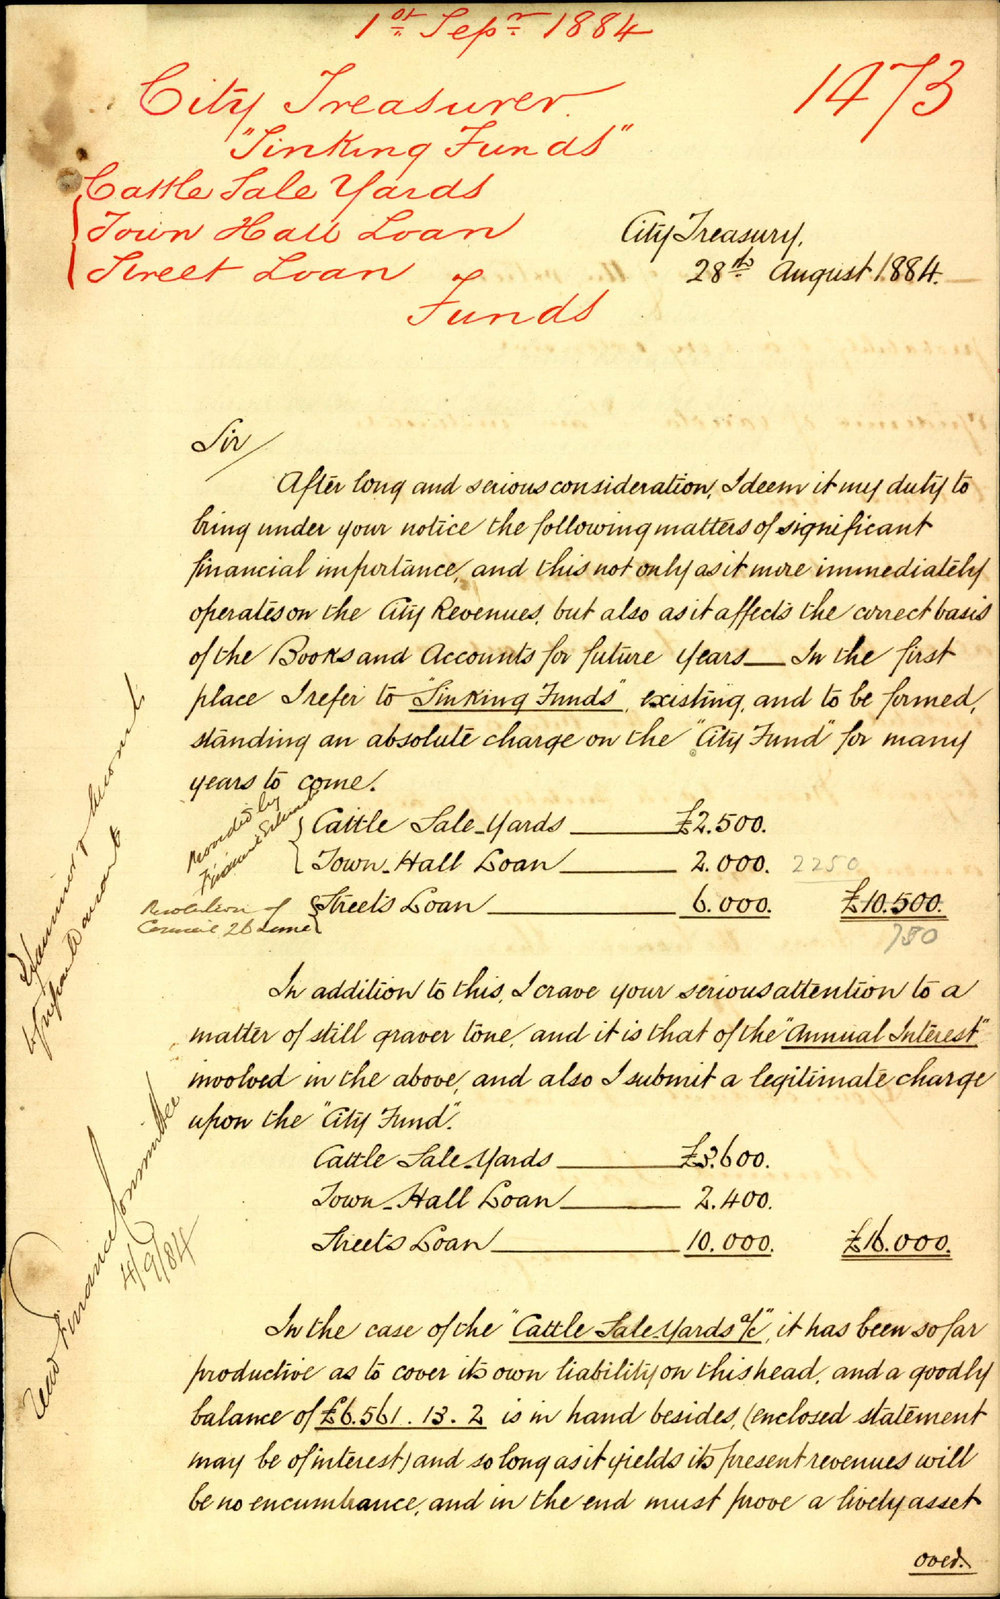 1st Sepr 1884
City Treasurer
1473
"Sinking Funds"
Cattle Sale Yards
Town Hall Loan
Street Loan
Funds
City Treasury,
28th August 1884.
Sir/
After long and serious consideration, I deem it my duty to
bring under your notice the following matters of significant
financial importance, and this not only as it more immediately
operates on the City Revenues, but also as it affects the correct basis
of the Books and Accounts for future years — In the first
place I refer to "Sinking Funds", existing, and to be formed,
standing an absolute charge on the "City Fund" for many
years to come.
Cattle Sale-Yards — £2.500.
Town-Hall Loan — 2.000. 2250
Streets Loan — 6.000. £10.500.
750
Resolution of
Council 26 June
In addition to this, I crave your serious attention to a
matter of still graver tone, and it is that of the "Annual Interest"
involved in the above, and also I submit a legitimate charge
upon the "City Fund".
Cattle Sale-Yards — £3.600.
Town-Hall Loan — 2.400.
Streets Loan — 10.000. £16.000.
In the case of the "Cattle Sale Yards a/c", it has been so far
productive as to cover its own liability on this head, and a goodly
balance of £6.561.13.2 is in hand besides, (enclosed statement
may be of interest) and so long as it yields its present revenues will
be no encumbrance, and in the end must prove a lively asset
over.
Finance Committee
4/9/84